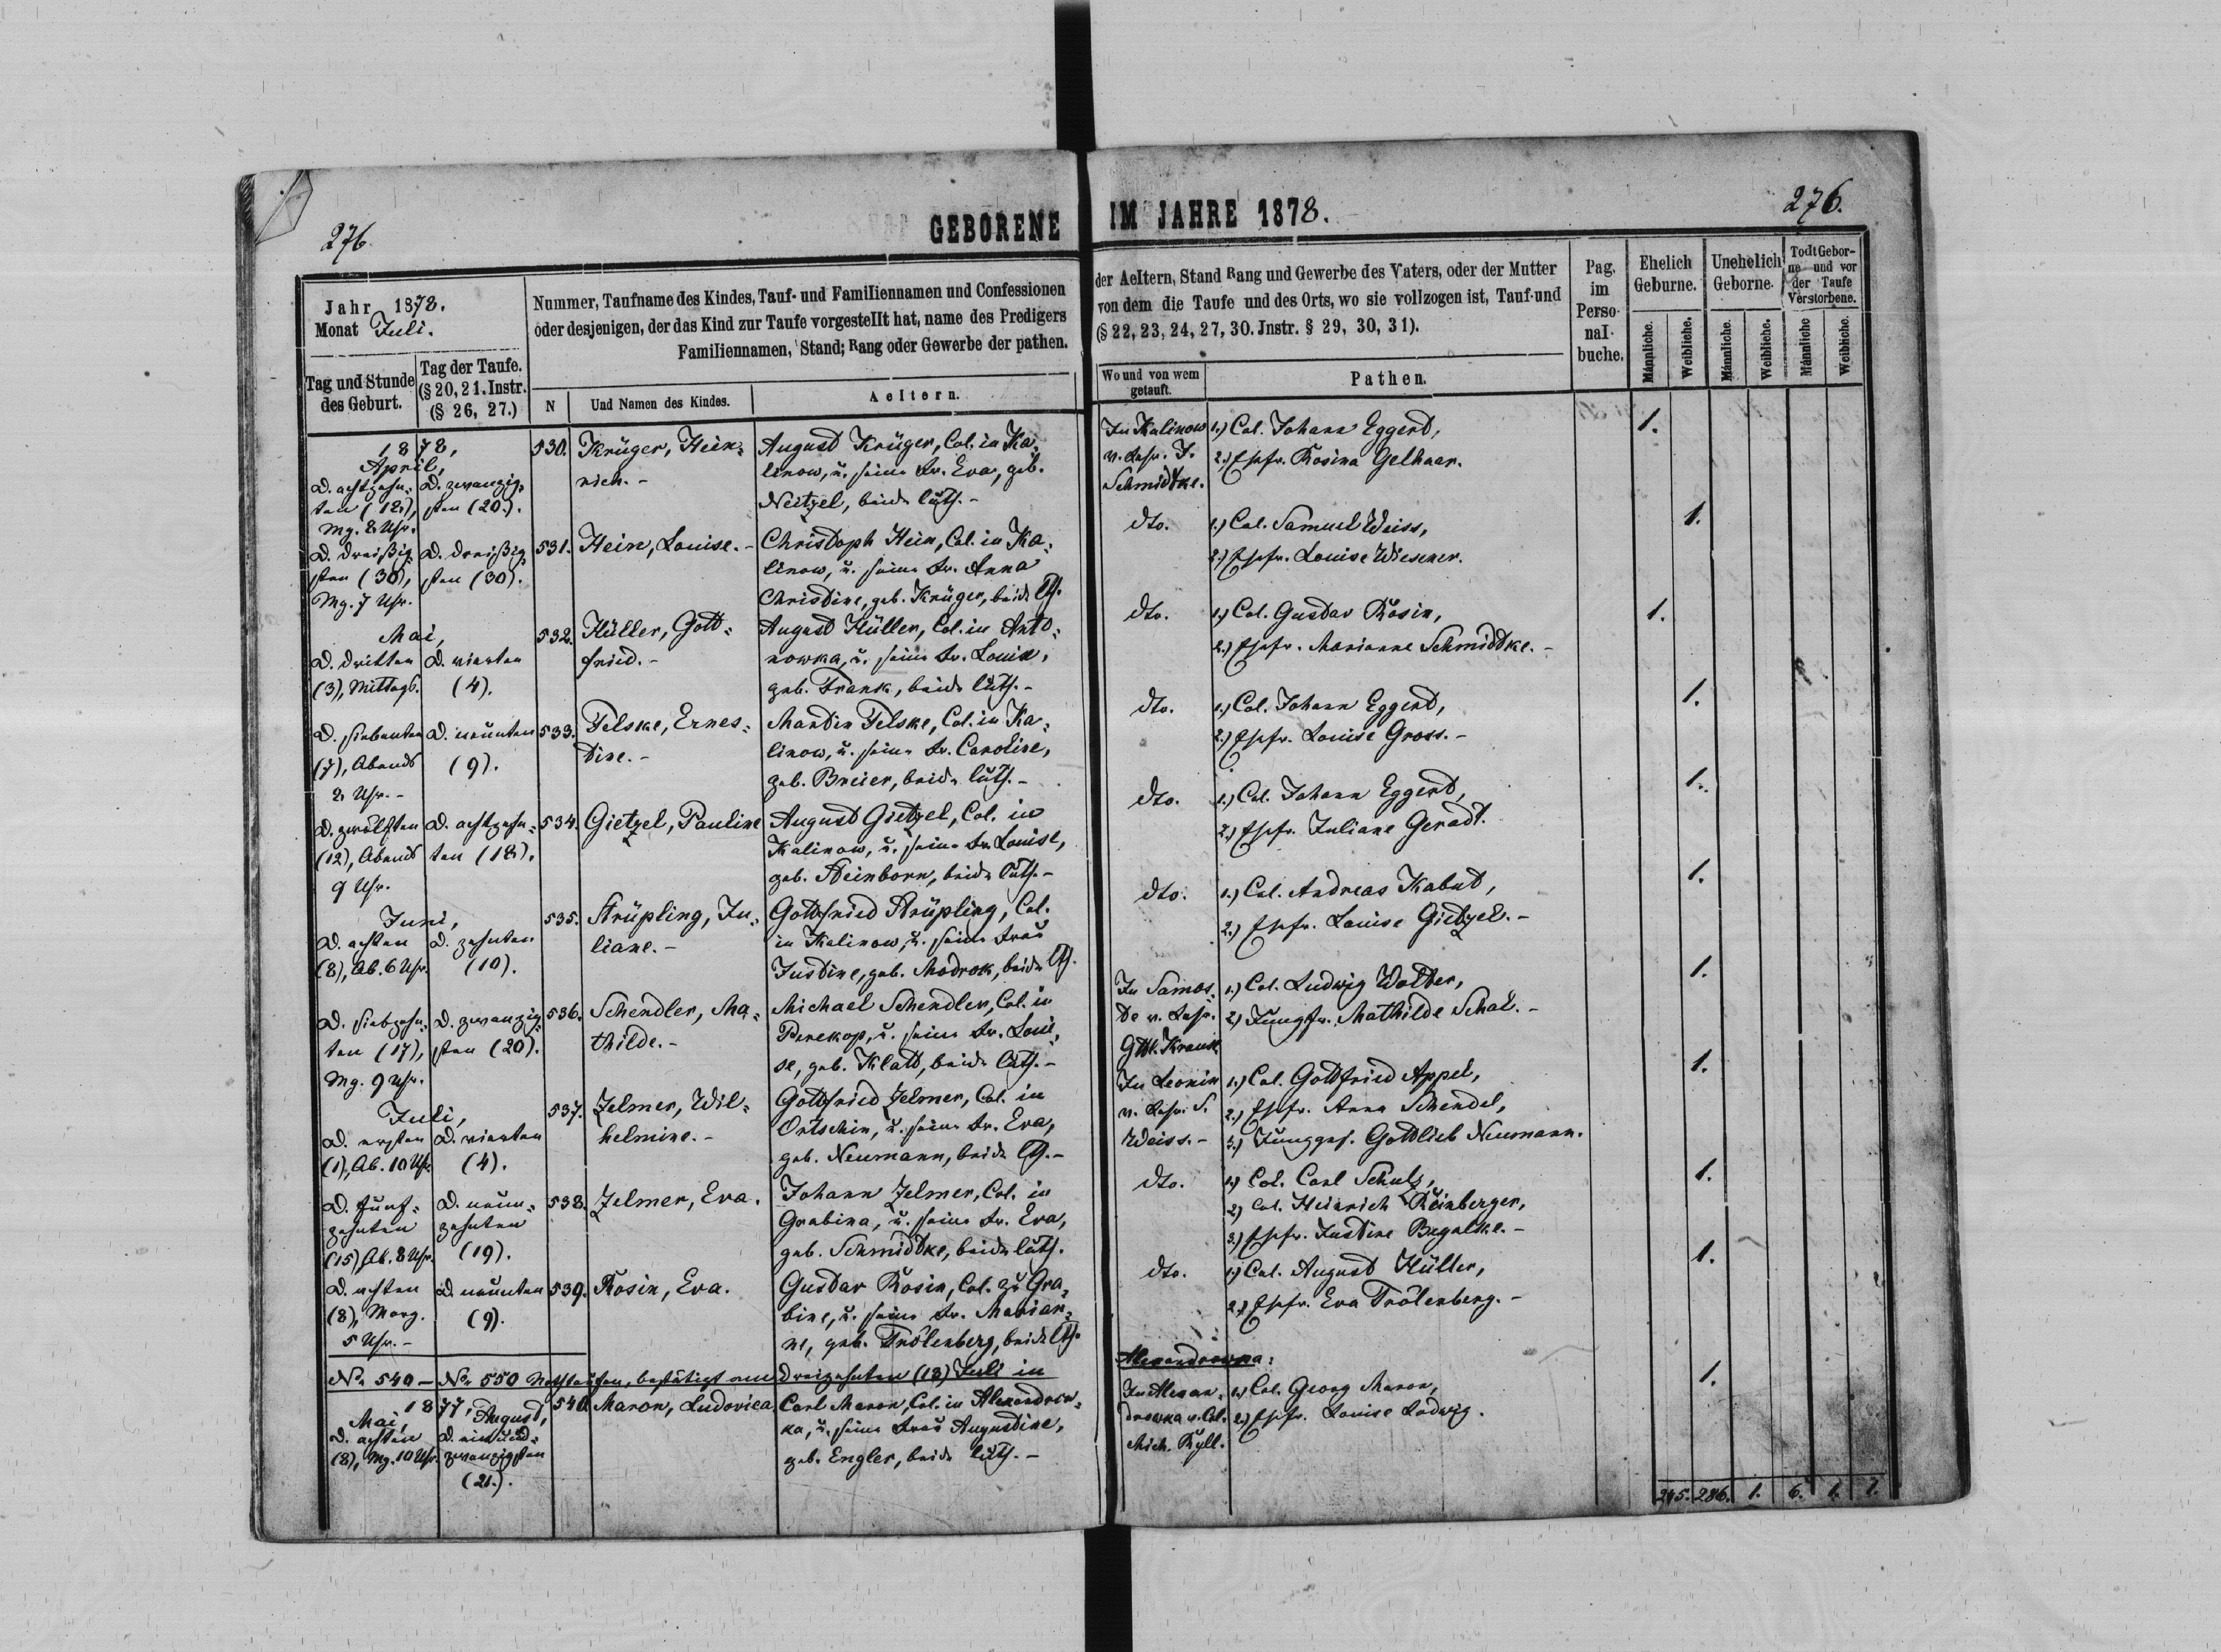 276.
GEBORENE
Jahr 1878.
Monat Juli.
Tag und Stunde des Geburt.
Tag der Taufe. (§ 20, 21. Instr. (§ 26, 27.)
Nummer, Taufname des Kindes, Tauf- und Familiennamen und Confessionen
oder desjenigen, der das Kind zur Taufe vorgestellt hat, name des Predigers
Familiennamen, Stand; Rang oder Gewerbe der pathen.
N
Und Namen des Kindes.
Aeltern.
1878,
April,
D. achtzehn-
ten (18),
Mg. 8 Uhr.
D. zwanzig-
sten (20).
530.
Krüger, Hein-
rich. -
August Krüger, Col. in Ka-
linow, u. seine Fr. Eva, geb.
Neitzel, beide luth. -
D. dreißig-
sten (30),
Mg. 7 Uhr.
D. dreißig-
sten (30).
531.
Hein, Louise. -
Christoph Hein, Col. in Ka-
linow, u. seine Fr. Anna
Christine, geb. Krüger, beide lth.
Mai,
D. dritten
(3), Mittags.
D. vierten
(4).
532.
Hüller, Gott-
fried. -
August Hüller, Col. in Anto-
nowka, u. seine Fr. Louise,
geb. Frank, beide luth. -
D. siebenten
(7), Abends
8 Uhr. -
D. neunten
(9).
533.
Felske, Ernes-
tine. -
Martin Felske, Col. in Ka-
linow, u. seine Fr. Caroline,
geb. Breier, beide luth. -
D. zwölften
(12), Abends
9 Uhr.
D. achtzehn-
ten (18).
534.
Gietzel, Pauline
August Gietzel, Col. in
Kalinow, u. seine Fr. Louise,
geb. Steinborn, beide luth. -
Juni,
D. achten
(8), Ab. 6 Uhr.
D. zehnten
(10).
535.
Strüpling, Ju-
liane. -
Gottfried Strüpling, Col.
in Kalinow, u. seine Frau
Justine, geb. Modrok, beide lth.
D. siebzehn-
ten (17),
Mg. 9 Uhr.
D. zwanzig-
sten (20).
536.
Schendler, Ma-
thilde. -
Michael Schendler, Col. in
Perekop, u. seine Fr. Loui-
se, geb. Klatt, beide luth. -
Juli,
D. ersten
(1), Ab. 10 Uhr.
D. vierten
(4).
537.
Zelmer, Wil-
helmine. -
Gottfried Zelmer, Col. in
Ortschin, u. seine Fr. Eva,
geb. Neumann, beide lth. -
D. fünf-
zehnten
(15), Ab. 8 Uhr.
D. neun-
zehnten
(19).
538.
Zelmer, Eva.
Johann Zelmer, Col. in
Grabina, u. seine Fr. Eva,
geb. Schmidtke, beide luth.
D. achten
(8), Morg.
5 Uhr. -
D. neunten
(9).
539.
Rosin, Eva.
Gustav Rosin, Col. zu Gra-
bine, u. seine Fr. Marian-
ne, geb. Trölenberg, beide lth.
No 540 - No 550 Nothtaufen, bestätigt am dreizehnten (13) Juli in
1877,
Mai,
D. achten
(8), Mg. 10 Uhr.
August,
D. einund-
zwanzigsten
(21.).
540.
Maron, Ludovica
Carl Maron, Col. in Alexandrow-
ka, u. seine Frau Augustine,
geb. Engler, beide luth. -
IM JAHRE 1878.
276.
der Aeltern, Stand Rang und Gewerbe des Vaters, oder der Mutter
von dem die Taufe und des Orts, wo sie vollzogen ist, Tauf-und
(§ 22, 23, 24, 27, 30. Jnstr. § 29, 30, 31).
Wo und von wem getauft.
Pathen.
Pag. im Perso-nal-buche.
Ehelich Geburne.
Unehelich Geborne.
Todt Gebor-ne und vor der Taufe Verstorbene.
Männliche.
Weibliche.
Männliche.
Weibliche.
Männliche
Weibliche.
In Kalinow
v. Lehr. J.
Schmidtke.
1.) Col. Johann Eggert,
2.) Ehefr. Rosina Gelhaar.
1.
dto.
1.) Col. Samuel Weiss,
2.) Ehefr. Louise Wiesener.
1.
dto.
1.) Col. Gustav Rosin,
2.) Ehefr. Marianne Schmidtke. -
1.
dto.
1.) Col. Johann Eggert,
2.) Ehefr. Louise Gross. -
1.
dto.
1.) Col. Johann Eggert,
2.) Ehefr. Juliane Geradt.
1.
dto.
1.) Col. Andreas Kabut,
2.) Ehefr. Louise Gietzel. -
1.
In Samos-
te v. Lehr.
Gttl. Krause
1.) Col. Ludwig Wolter,
2.) Jungfr. Mathilde Schal. -
1.
In Leonin
v. Lehr. S.
Weiss. -
1.) Col. Gottfried Appel,
2.) Ehefr. Anna Schendel,
3.) Junggs. Gottlieb Neumann.
1.
dto.
1.) Col. Carl Schulz,
2) Col. Heinrich Reinberger,
3.) Ehefr. Justine Bugalke. -
1.
dto.
1.) Col. August Hüller,
2.) Ehefr. Eva Trölenberg. -
1.
Alexandrowka:
In Alexan-
drowka v. Col.
Mich. Ryll.
1.) Col. Georg Maron,
2.) Ehefr. Louise Ladwig.
1.
245. 286. 1. 6. 1. 1.